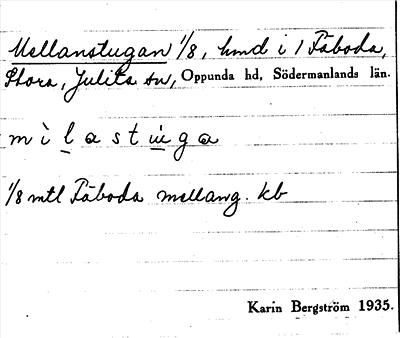 Mellanstugan 1/8, hmd i 1 Fäboda,
Stora, Julita sn, Oppunda hd, Södermanlands län.
m ì l a s t ù g a
1/8 mtl Fäboda mellang. kb
Karin Bergström 1935.